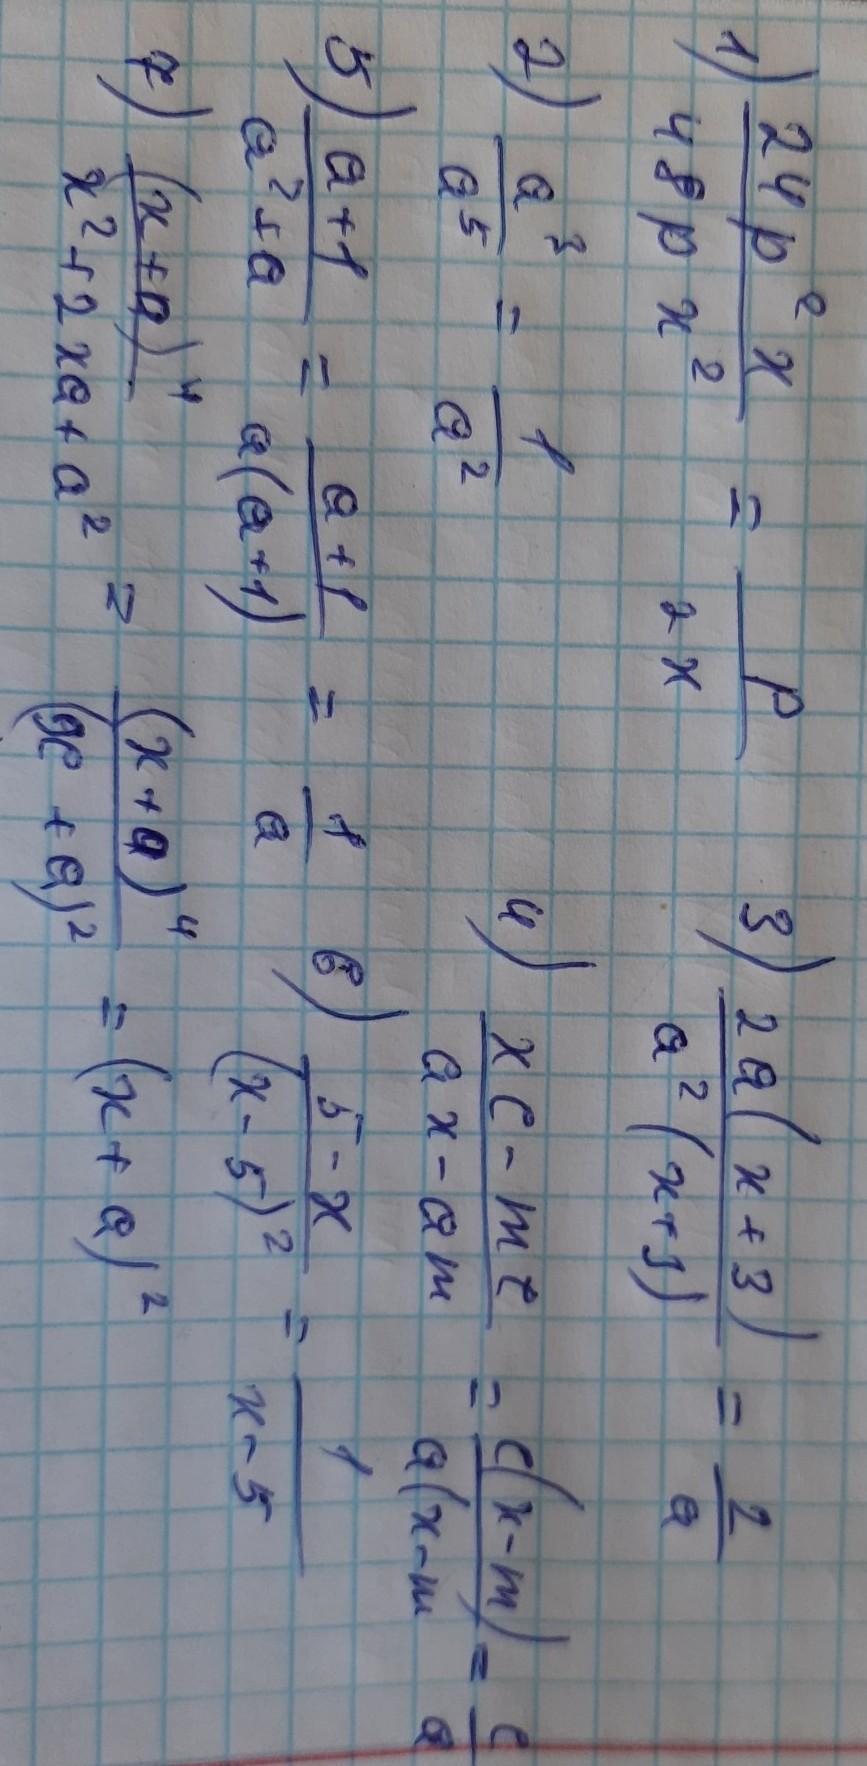 1) 24p²x / 48px² = p / 2x
3) 2a(x+3) / a²(x+3) = 2 / a
2) a³ / a⁵ = 1 / a²
4) xc-mc / ax-am = c(x-m) / a(x-m = c / a
5) a+1 / a²+a = a+1 / a(a+1) = 1 / a
6) 5-x / (x-5)² = 1 / x-5
7) (x+a)⁴ / x²+2xa+a² = (x+a)⁴ / (x+a)² = (x+a)²